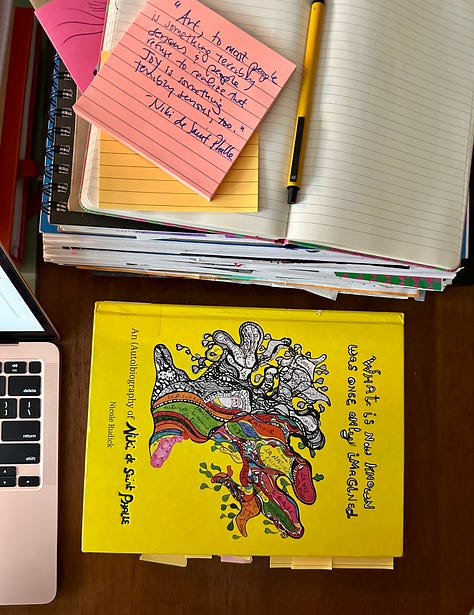 "Art, to most people
is something terribly
serious & people
refuse to realize that
Joy is something
terribly serious, too."
- Niki de Saint Phalle
WHAT IS NOW KNOWN
WAS ONCE ONLY IMAGINED
An (Auto)biography of Niki de Saint Phalle
Nicole Rudick
delete
return
shift